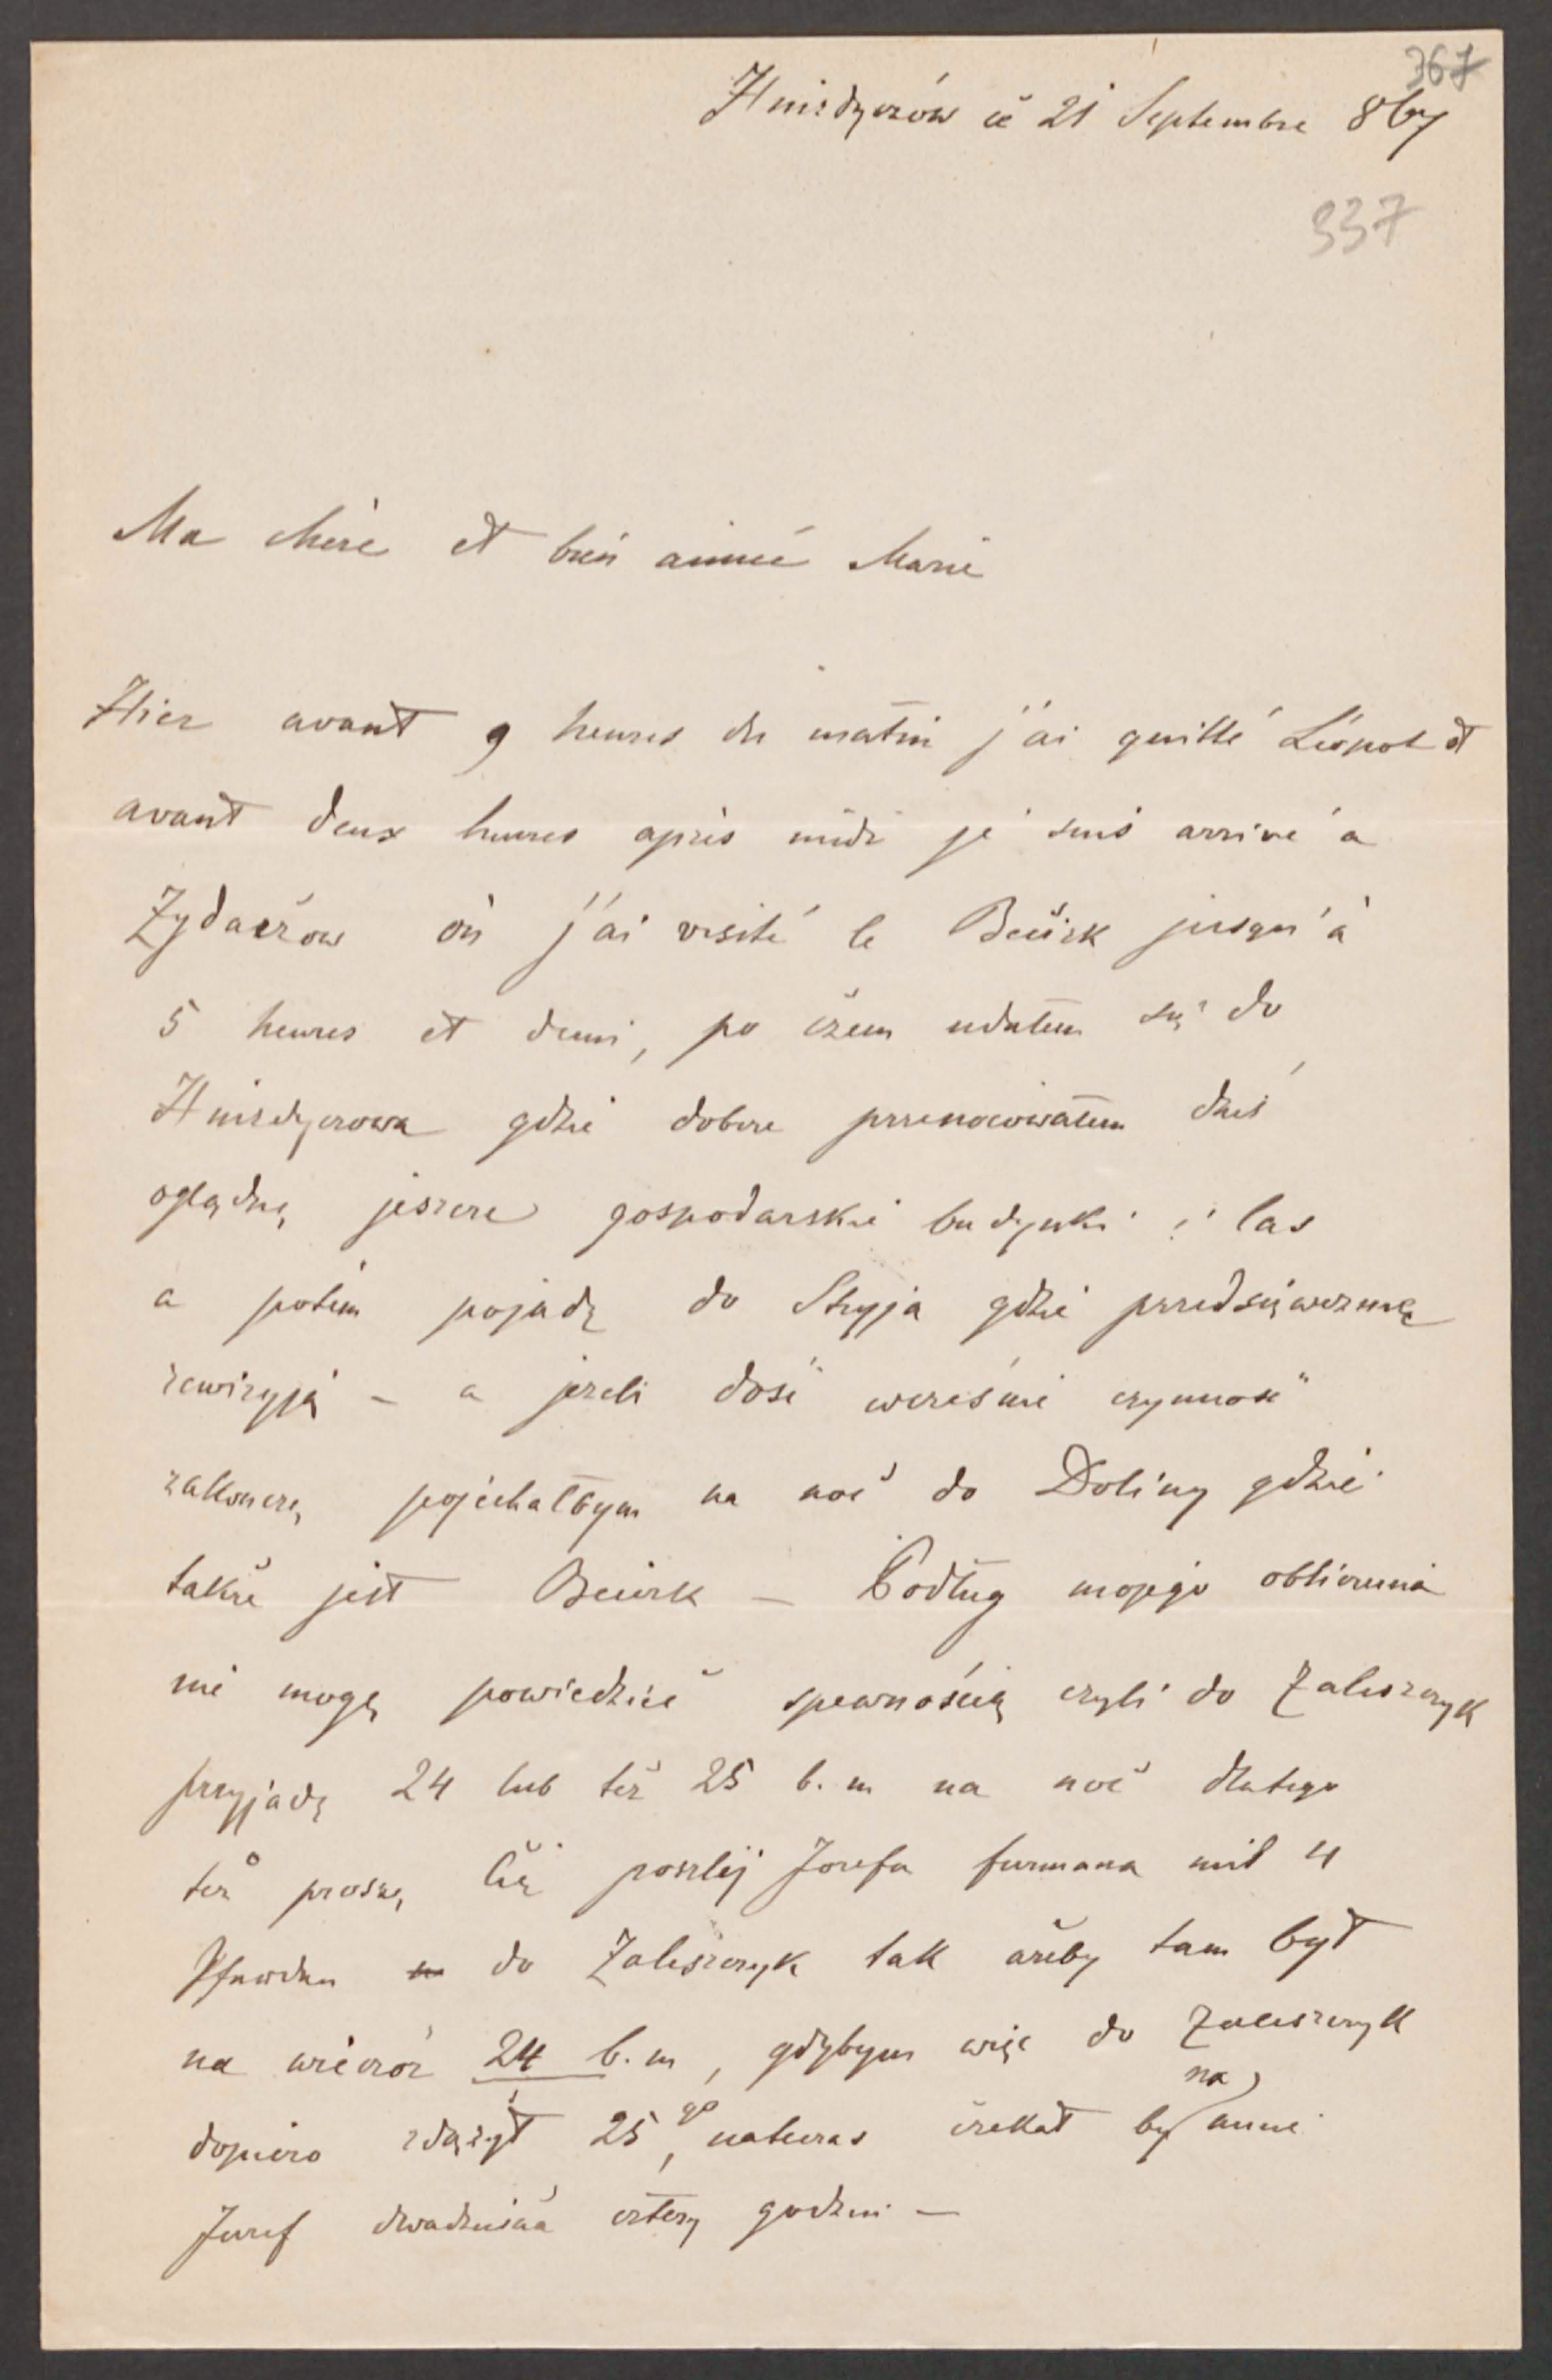 367
Hnizdyczów ce 21 Septembre 867
337
Ma chère et bien aimée Marie
Hier avant 9 heures du matin j'ai quitté Léopol et
avant deux heures après midi je suis arrivé a
Zydaczow où j'ai visité le Bezirk jusqu'à
5 heures et demi, po czem udałem się do
Hnizdyczowa gdzie dobrze przenocowałem dziś
oglądnę jeszcze gospodarskie budynki i las
a potem pojadę do Stryja gdzie przedsięwezmę
rewizyją – a jezeli dość wcześnie czynność
zakonczę, pojechałbym na noć do Doliny gdzie
także jest Bezirk – Podług mojego obliczenia
nie mogę powiedzieć spewnością czyli do Zaleszczyk
przyjadę 24 lub też 25 b. m na noć dlatego
też proszę Cię poszlij Jozefa furmana mit 4
Pferden do Zaleszczyk tak ażeby tam był
na wieczór 24 b. m, gdybym więc do Zaleszczyk
dopiero zdążył 25go, natenczas czekał by na mnie
Jozef dwadzieścia cztery godzin –